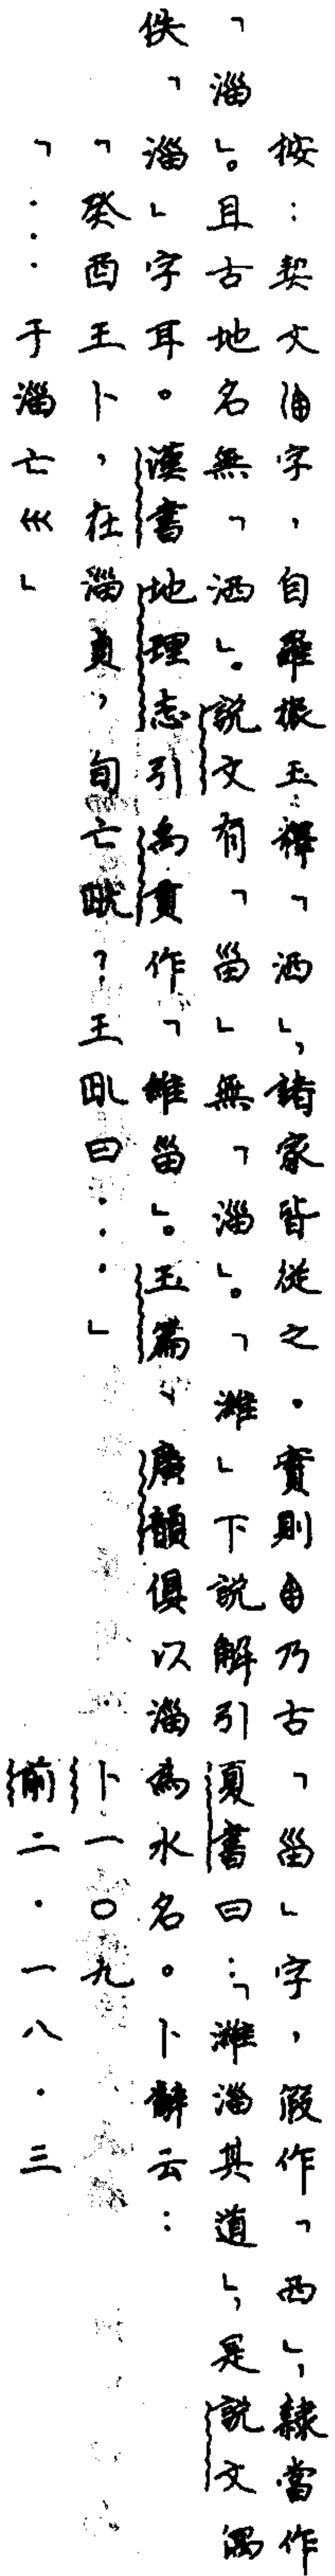 按：契文字，自羅振玉釋「洒」，諸家皆從之。實則乃古「甾」字，假作「西」，隸當作
「淄」。且古地名無「洒」。說文有「甾」無「淄」。「濰」下說解引夏書曰：「濰淄其道」，是說文偶
佚「淄」字耳。漢書地理志引禹貢作「維甾」。玉篇、廣韻俱以淄為水名。卜辭云：
「癸酉王卜，在淄貞，旬亡㕢？王曰...」 卜一〇九
「...于淄亡巛」 前二.一八.三